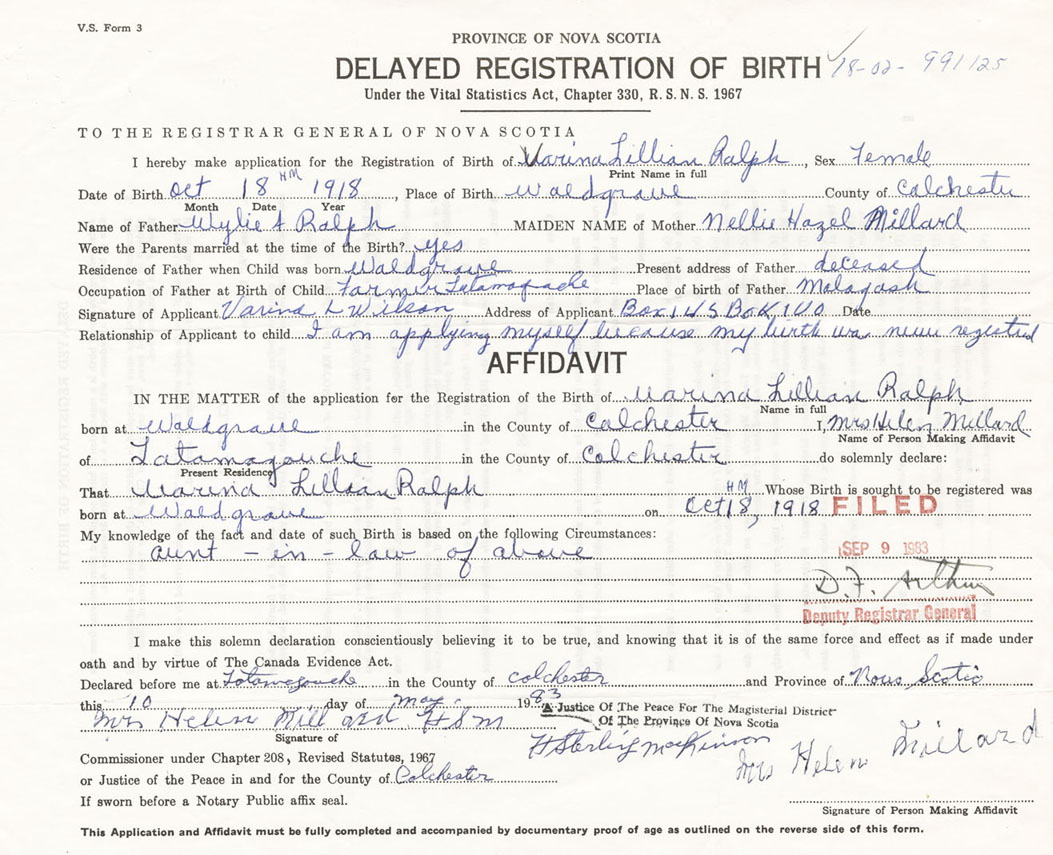 V.S. Form 3
PROVINCE OF NOVA SCOTIA
DELAYED REGISTRATION OF BIRTH 18-02- 991125
Under the Vital Statistics Act, Chapter 330, R. S. N. S. 1967
TO THE REGISTRAR GENERAL OF NOVA SCOTIA
I hereby make application for the Registration of Birth of Varina Lillian Ralph, Sex Female
Print Name in full
Date of Birth Oct 18 HM 1918, Place of Birth Waldgrave County of Colchester
Month Date Year
Name of Father Wylie A Ralph MAIDEN NAME of Mother Nellie Hazel Millard
Were the Parents married at the time of the Birth? yes
Residence of Father when Child was born Waldgrave Present address of Father deceased
Occupation of Father at Birth of Child Farmer Tatamagouche Place of birth of Father Malagash
Signature of Applicant Varina L Wilson Address of Applicant Box 145 Box 140 Date
Relationship of Applicant to child I am applying myself because my birth was never registred
AFFIDAVIT
IN THE MATTER of the application for the Registration of the Birth of Varina Lillian Ralph
Name in full
born at Waldgrave in the County of Colchester I, Mrs Helen Millard
Name of Person Making Affidavit
of Tatamagouche in the County of Colchester do solemnly declare:
Present Residence
That Varina Lillian Ralph Whose Birth is sought to be registered was
born at Waldgrave on Oct 18, HM 1918 FILED
My knowledge of the fact and date of such Birth is based on the following Circumstances:
aunt - in - law of above
SEP 9 1983
D. F. Arthur
Deputy Registrar General
I make this solemn declaration conscientiously believing it to be true, and knowing that it is of the same force and effect as if made under
oath and by virtue of The Canada Evidence Act.
Declared before me at Tatamagouche in the County of Colchester and Province of Nova Scotia
this 10 day of May 1983
A Justice Of The Peace For The Magisterial District
Of The Province Of Nova Scotia
Mrs Helen Millard HSM
Signature of
H Sterling MacKinnon
Mrs Helen Millard
Commissioner under Chapter 208, Revised Statutes, 1967
or Justice of the Peace in and for the County of Colchester
If sworn before a Notary Public affix seal.
Signature of Person Making Affidavit
This Application and Affidavit must be fully completed and accompanied by documentary proof of age as outlined on the reverse side of this form.